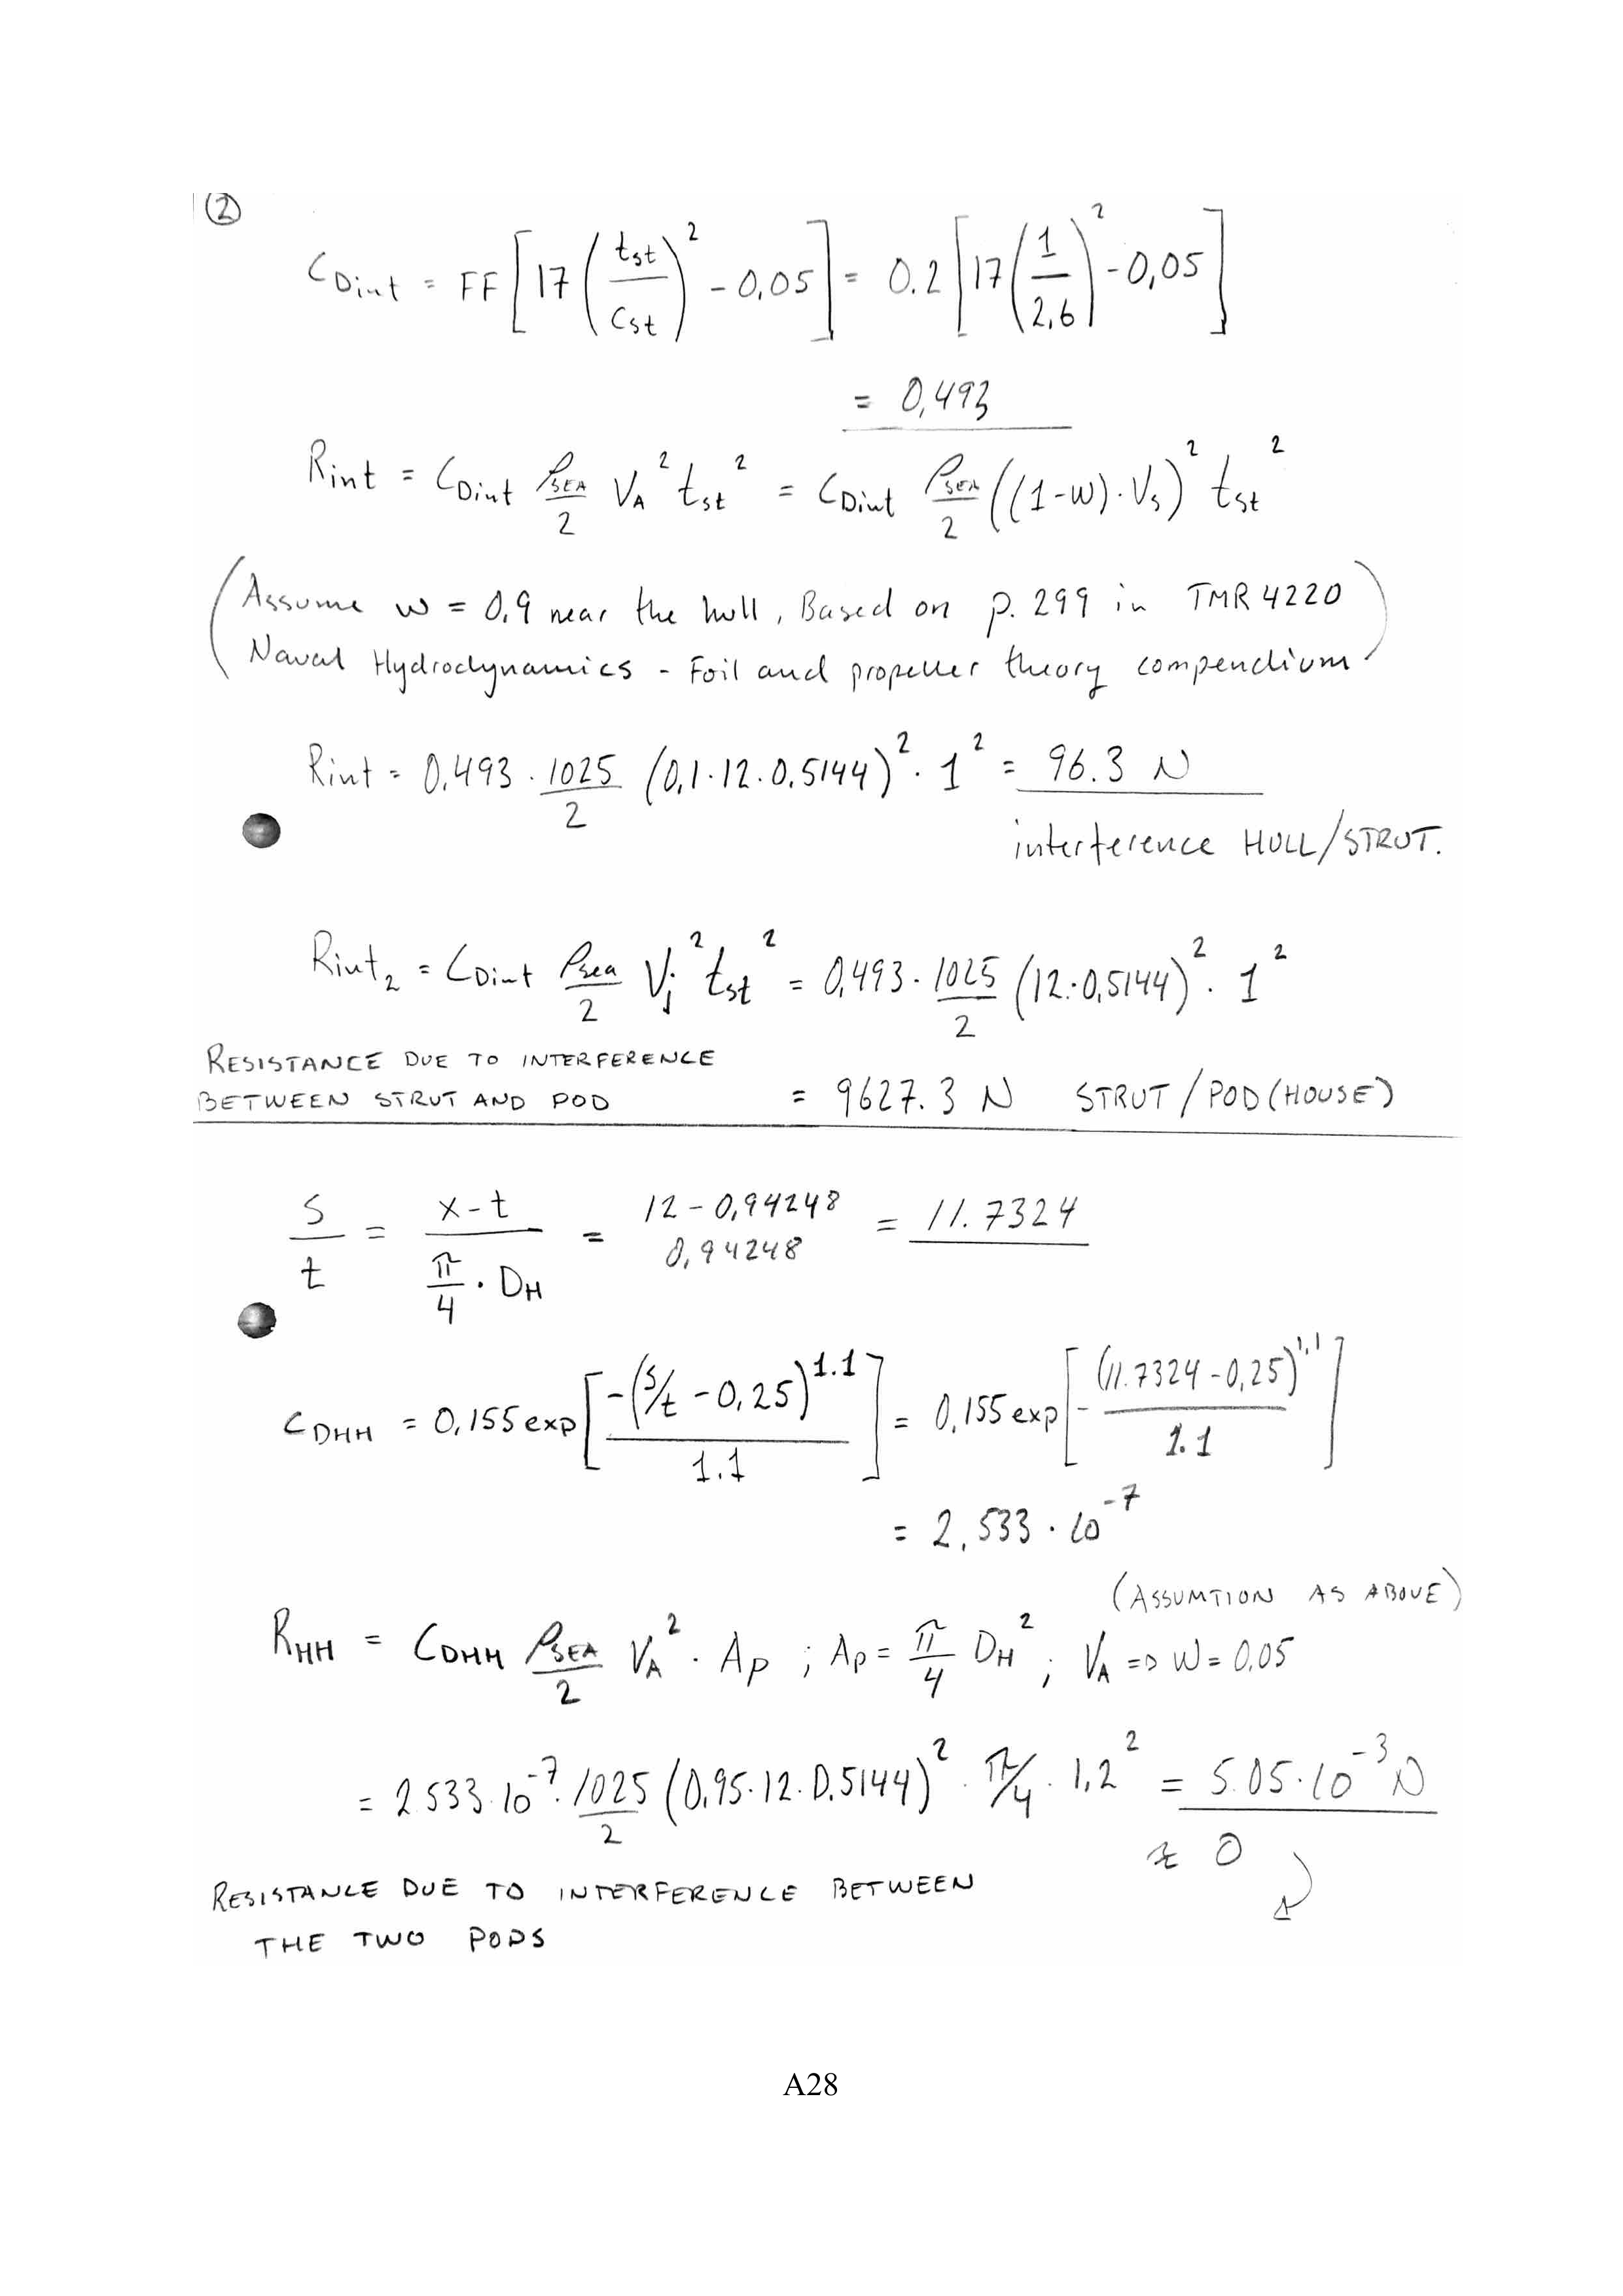 ②
C_Dint = FF [17 (t_st / c_st)² - 0,05] = 0.2 [17 (1 / 2,6)² - 0,05]
= 0,493
R_int = C_Dint ρ_SEA/2 V_A² t_st² = C_Dint ρ_SEA/2 ((1-w)·V_s)² t_st²
(Assume w = 0,9 near the hull, Based on p. 299 in TMR 4220
Naval Hydrodynamics - Foil and propeller theory compendium)
R_int = 0,493 · 1025/2 (0,1·12·0,5144)² · 1² = 96.3 N
interference HULL/STRUT.
R_int₂ = C_Dint ρ_sea/2 V_j² t_st² = 0,493 · 1025/2 (12·0,5144)² · 1²
RESISTANCE DUE TO INTERFERENCE
BETWEEN STRUT AND POD = 9627.3 N STRUT/POD (HOUSE)
s/t = (x-t) / (π/4 · D_H) = (12 - 0,94248) / 0,94248 = 11.7324
C_DHH = 0,155 exp[-(s/t - 0,25)^1.1 / 1.1] = 0,155 exp[- (11.7324 - 0,25)^1,1 / 1.1]
= 2,533 · 10⁻⁷
(ASSUMTION AS ABOVE)
R_HH = C_DHH ρ_SEA/2 V_A² · A_p ; A_p = π/4 D_H² ; V_A => w = 0,05
= 2.533·10⁻⁷ · 1025/2 (0,95·12·0,5144)² · π/4 · 1,2² = 5.05·10⁻³ N
≈ 0
RESISTANCE DUE TO INTERFERENCE BETWEEN
THE TWO PODS
A28